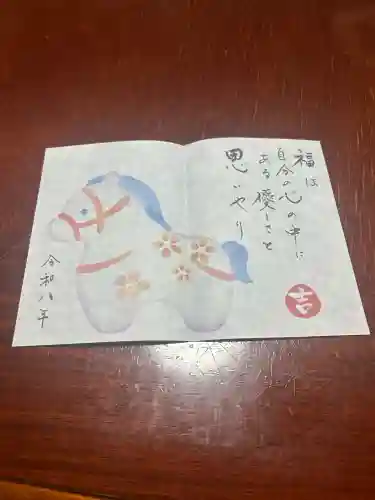 福は
自分の心の中に
ある優しさと
思いやり
吉
令和八年